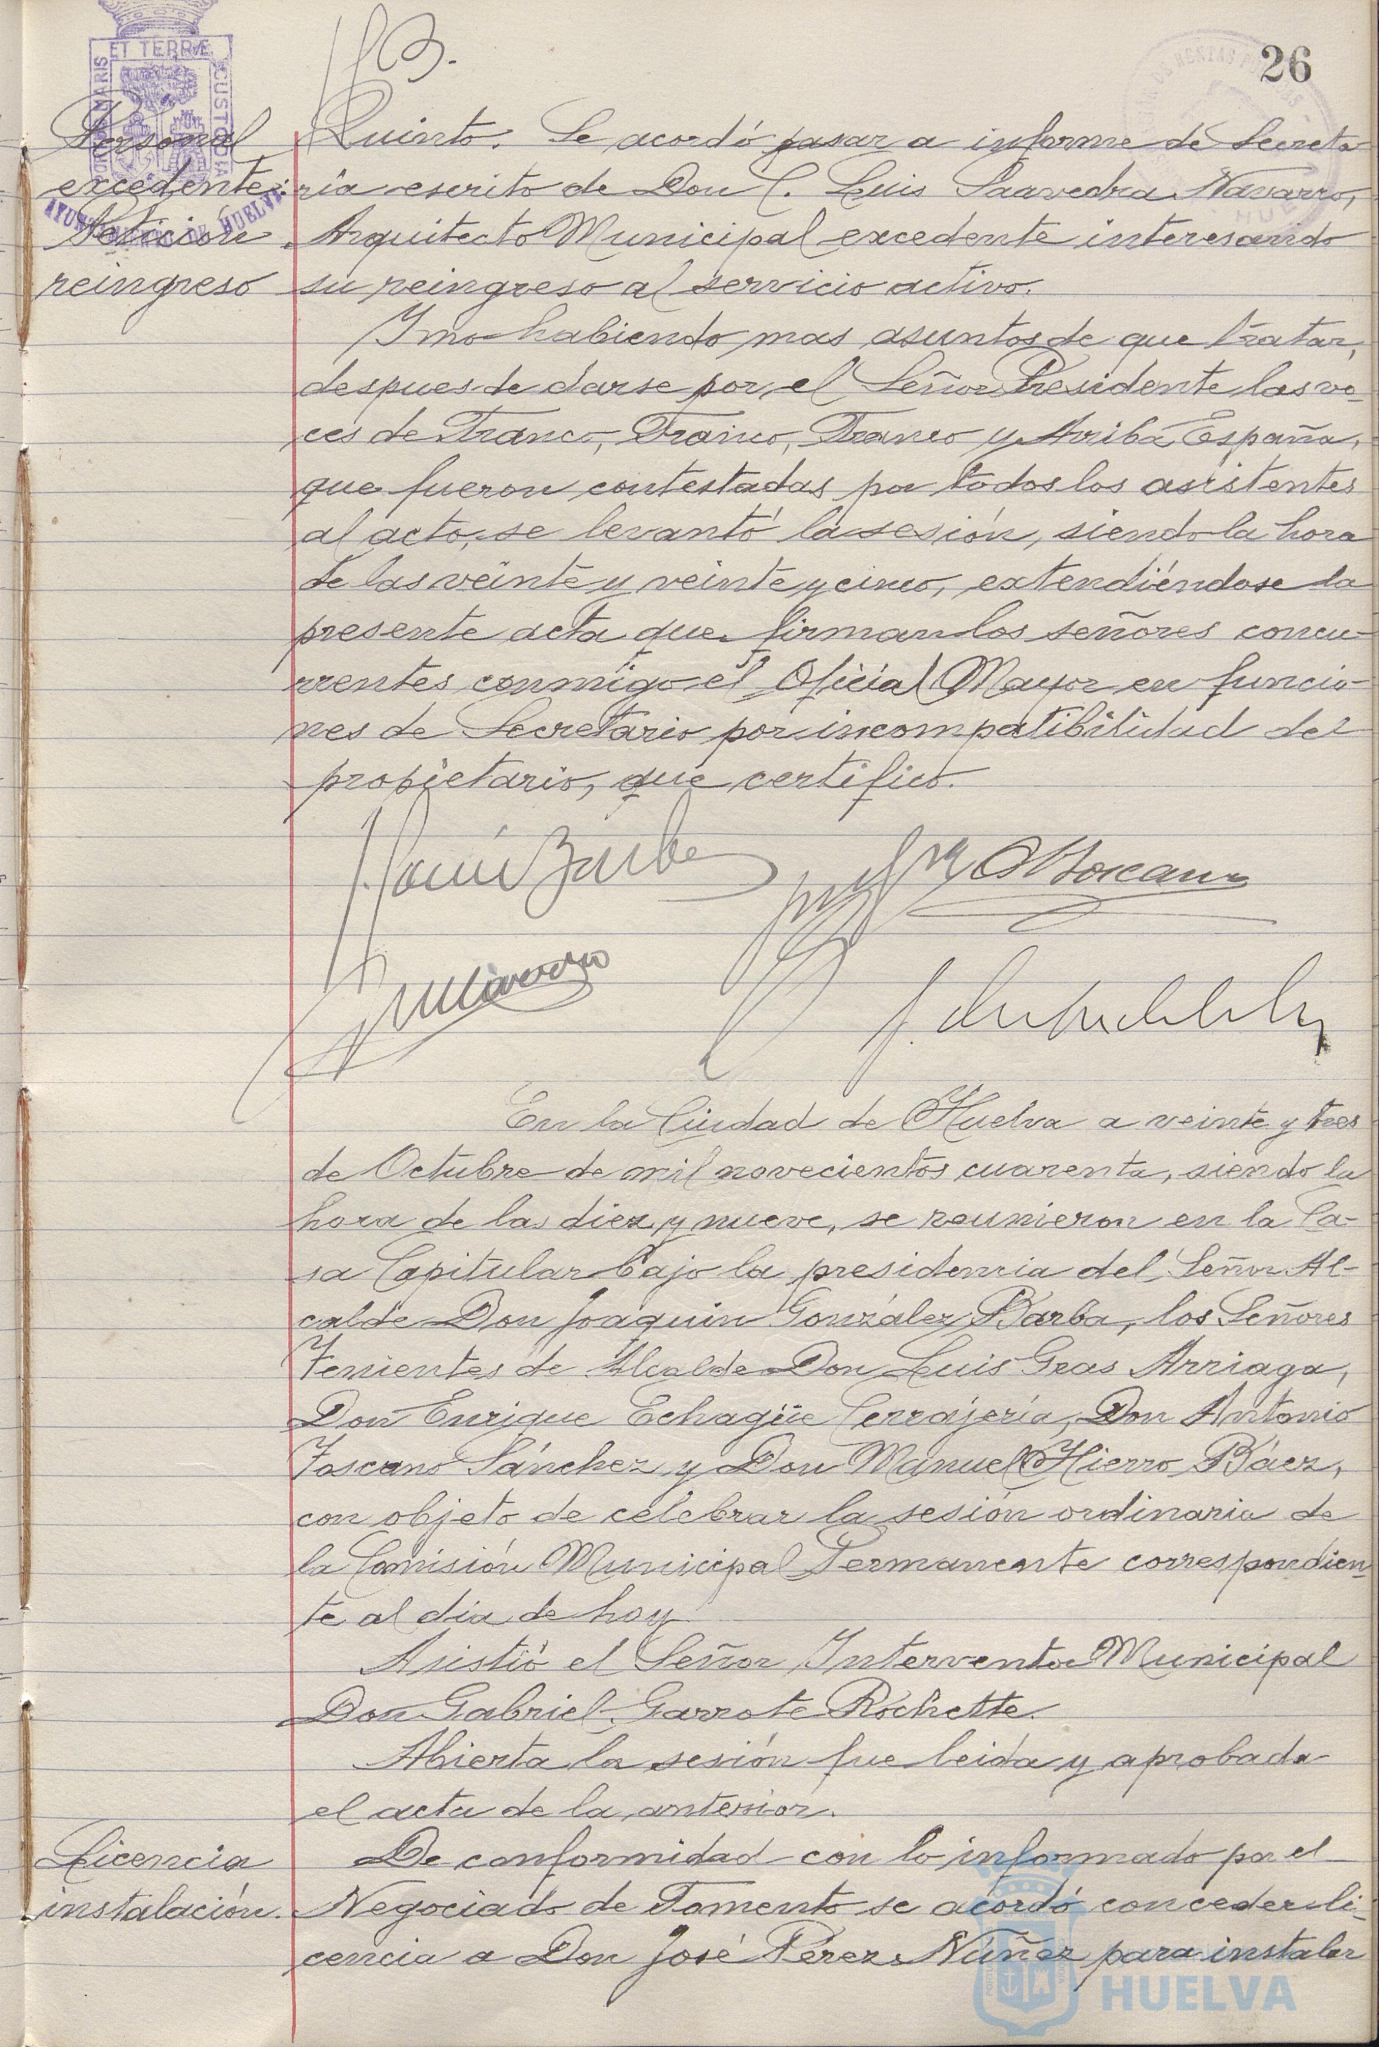 26
ET TERRÆ
CUSTODIA
AYUNTAMIENTO DE HUELVA
Personal
excedente:
Peticion
reingreso
Quinto. Se acordó pasar a informe de Secreta
ria escrito de Don C. Luis Saavedra Navarro,
Arquitecto Municipal excedente interesando
su reingreso al servicio activo.
Y no habiendo mas asuntos de que tratar,
despues de darse por el Señor Presidente las vo-
ces de Franco, Franco, Franco y Arriba España,
que fueron contestadas por todos los asistentes
al acto, se levantó la sesión, siendo la hora
de las veinte y veinte y cinco, extendiéndose la
presente acta que firman los señores concu-
rrentes conmigo el Oficial Mayor en funcio-
nes de Secretario por incompatibilidad del
propietario, que certifico.
En la Ciudad de Huelva a veinte y tres
de Octubre de mil novecientos cuarenta, siendo la
hora de las diez y nueve, se reunieron en la Ca-
sa Capitular bajo la presidencia del Señor Al-
calde Don Joaquin González Barba, los Señores
Tenientes de Alcalde Don Luis Gras Arriaga,
Don Enrique Echagüe Cerrajería, Don Antonio
Toscano Sánchez y Don Manuel Hierro Báez,
con objeto de celebrar la sesión ordinaria de
la Comisión Municipal Permanente correspondien-
te al dia de hoy
Asistió el Señor Interventor Municipal
Don Gabriel Garrote Rochette.
Abierta la sesión fue leida y aprobada
el acta de la anterior.
Licencia
instalación.
De conformidad con lo informado por el
Negociado de Fomento se acordó conceder li-
cencia a Don José Pérez Núñez para instalar
HUELVA